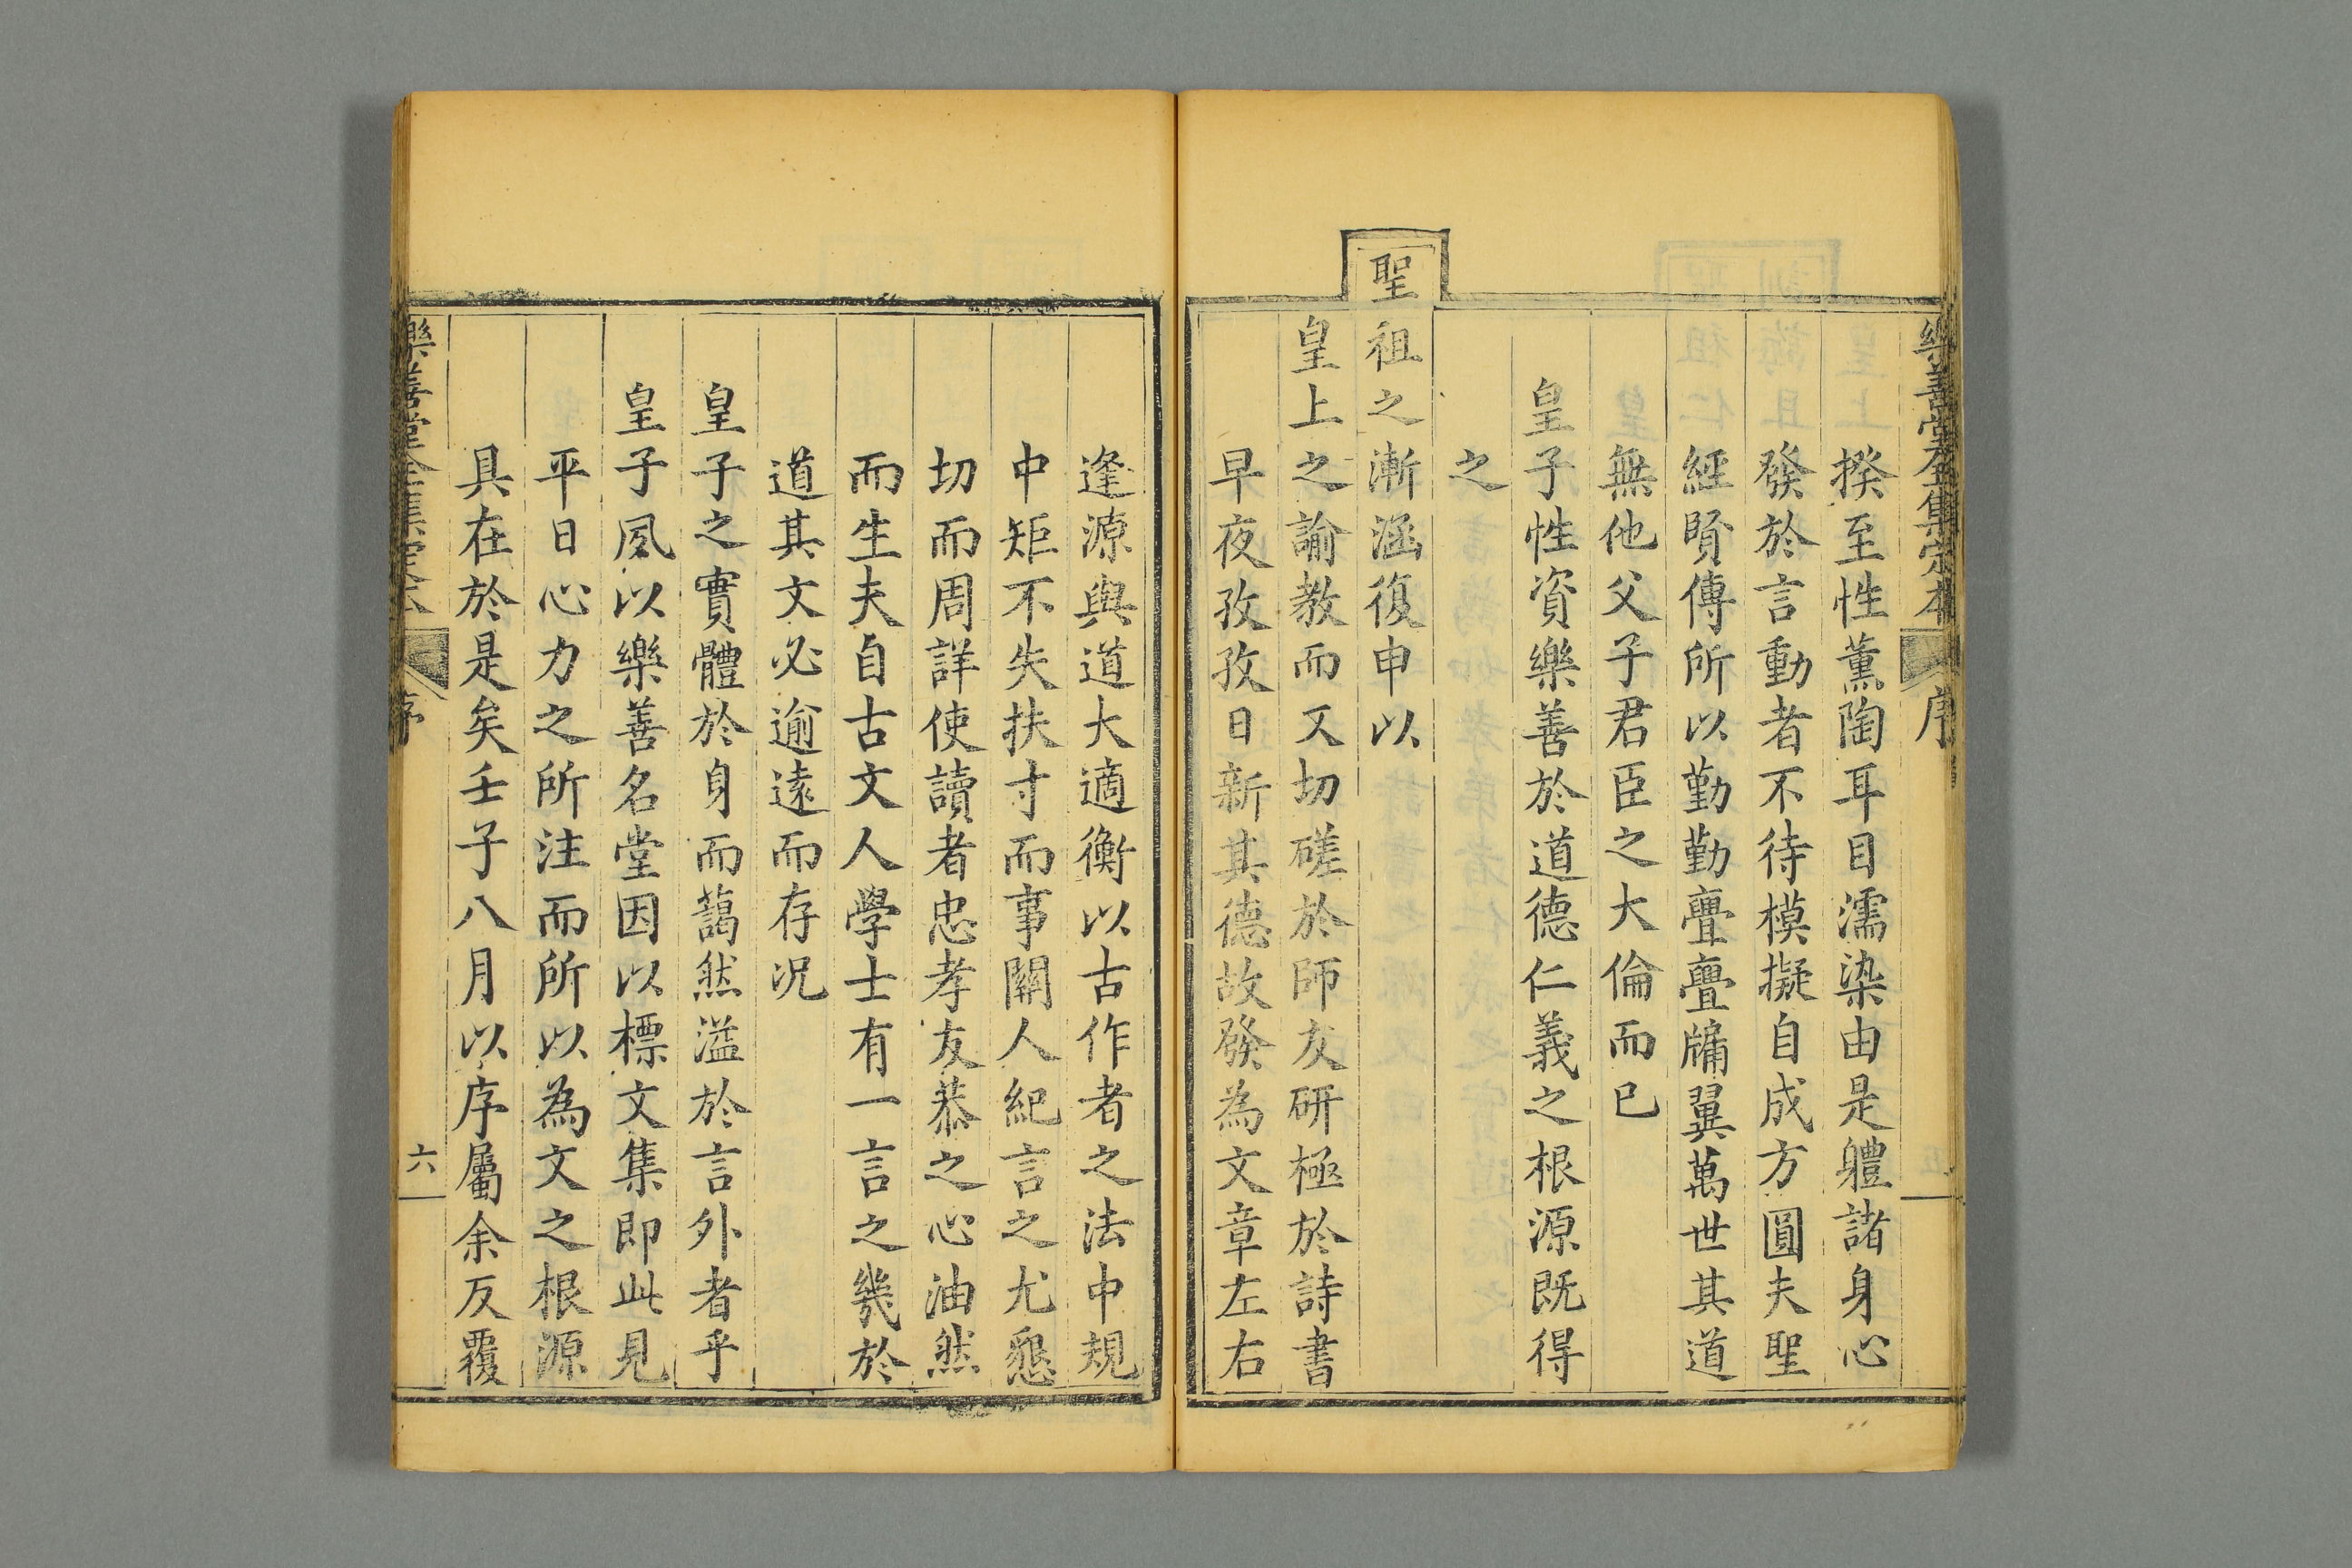 樂善堂全集定本 序
揆至性薰陶耳目濡染由是軆諸身心
發於言動者不待模擬自成方圓夫聖
經賢傳所以勤勤亹亹牗翼萬世其道
無他父子君臣之大倫而已
皇子性資樂善於道德仁義之根源既得
之
聖祖之漸涵復申以
皇上之諭教而又切磋於師友研極於詩書
早夜孜孜日新其德故發為文章左右
逢源與道大適衡以古作者之法中規
中矩不失扶寸而事關人紀言之尤懇
切而周詳使讀者忠孝友恭之心油然
而生夫自古文人學士有一言之幾於
道其文必逾遠而存况
皇子之實體於身而藹然溢於言外者乎
皇子夙以樂善名堂因以標文集即此見
平日心力之所注而所以為文之根源
具在於是矣壬子八月以序屬余反覆
樂善堂全集定本 序 六